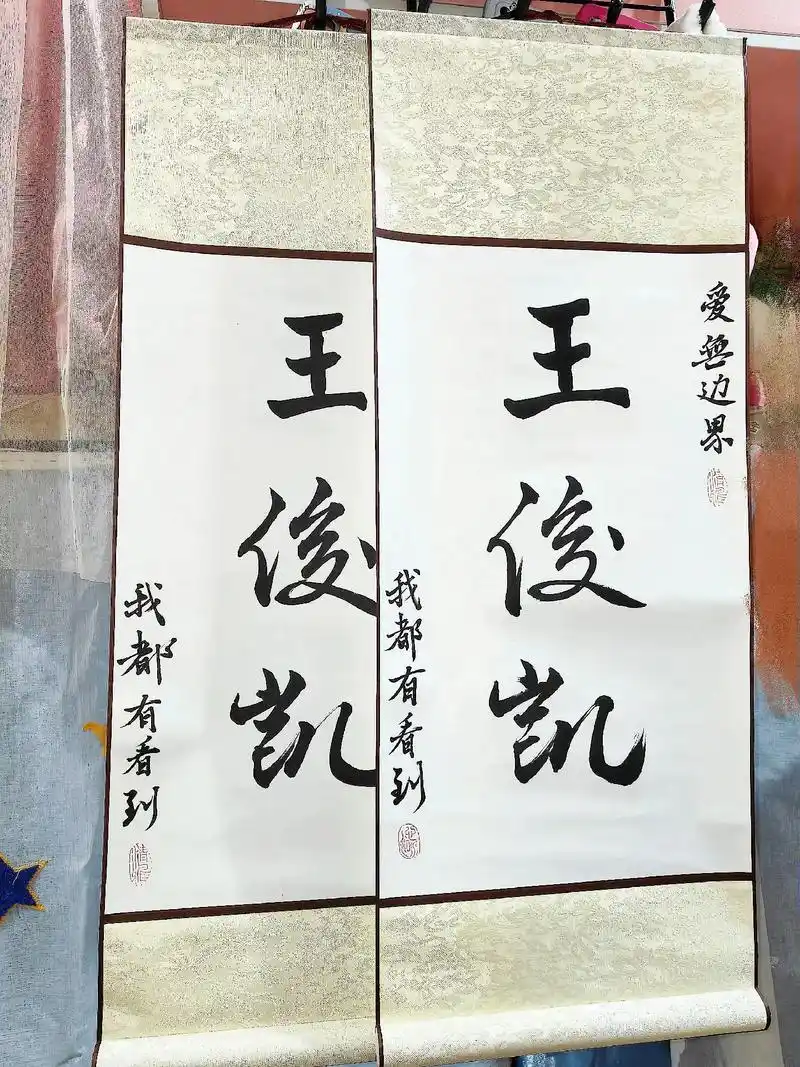 愛無边界
王俊凯
我都有看到
王俊凯
我都有看到